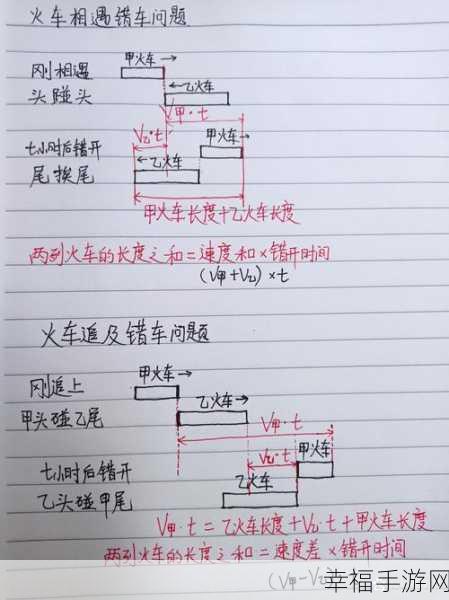 火车相遇错车问题
甲火车→
刚相遇
头碰头
←乙火车
V甲·t
V乙·t
甲火车→
t小时后错开
尾挨尾
←乙火车
甲火车长度+乙火车长度
两列火车的长度之和=速度和×错开时间
(V甲+V乙)×t
火车追及错车问题
甲火车→
刚追上
甲头碰乙尾
乙火车→
V甲·t
甲火车
V乙·t
t小时后错开
乙头碰甲尾
乙火车
V甲·t=乙火车长度+V乙·t+甲火车长度
两列火车的长度之和=速度差×错开时间
(V甲-V乙)
幸福手游网